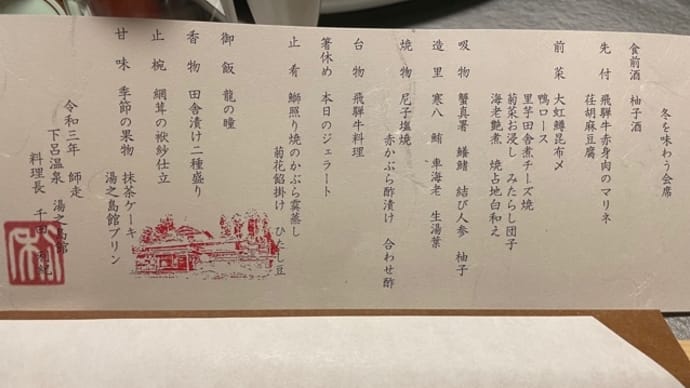 冬を味わう会席
食前酒 柚子酒
先付 飛騨牛赤身肉のマリネ
荏胡麻豆腐
前菜 大虹鱒昆布〆
鴨ロース
里芋田舎煮チーズ焼
菊菜お浸し みたらし団子
海老艶煮 焼占地白和え
吸物 蟹真薯 鱶鰭 結び人参 柚子
造里 寒八 鮪 車海老 生湯葉
焼物 尼子塩焼
赤かぶら酢漬け 合わせ酢
台物 飛騨牛料理
箸休め 本日のジェラート
止肴 鰤照り焼のかぶら霙蒸し
菊花餡掛け ひたし豆
御飯 龍の瞳
香物 田舎漬け二種盛り
止椀 網茸の袱紗仕立
甘味 季節の果物 抹茶ケーキ
湯之島館プリン
令和三年 師走
下呂温泉 湯之島館
料理長 千田